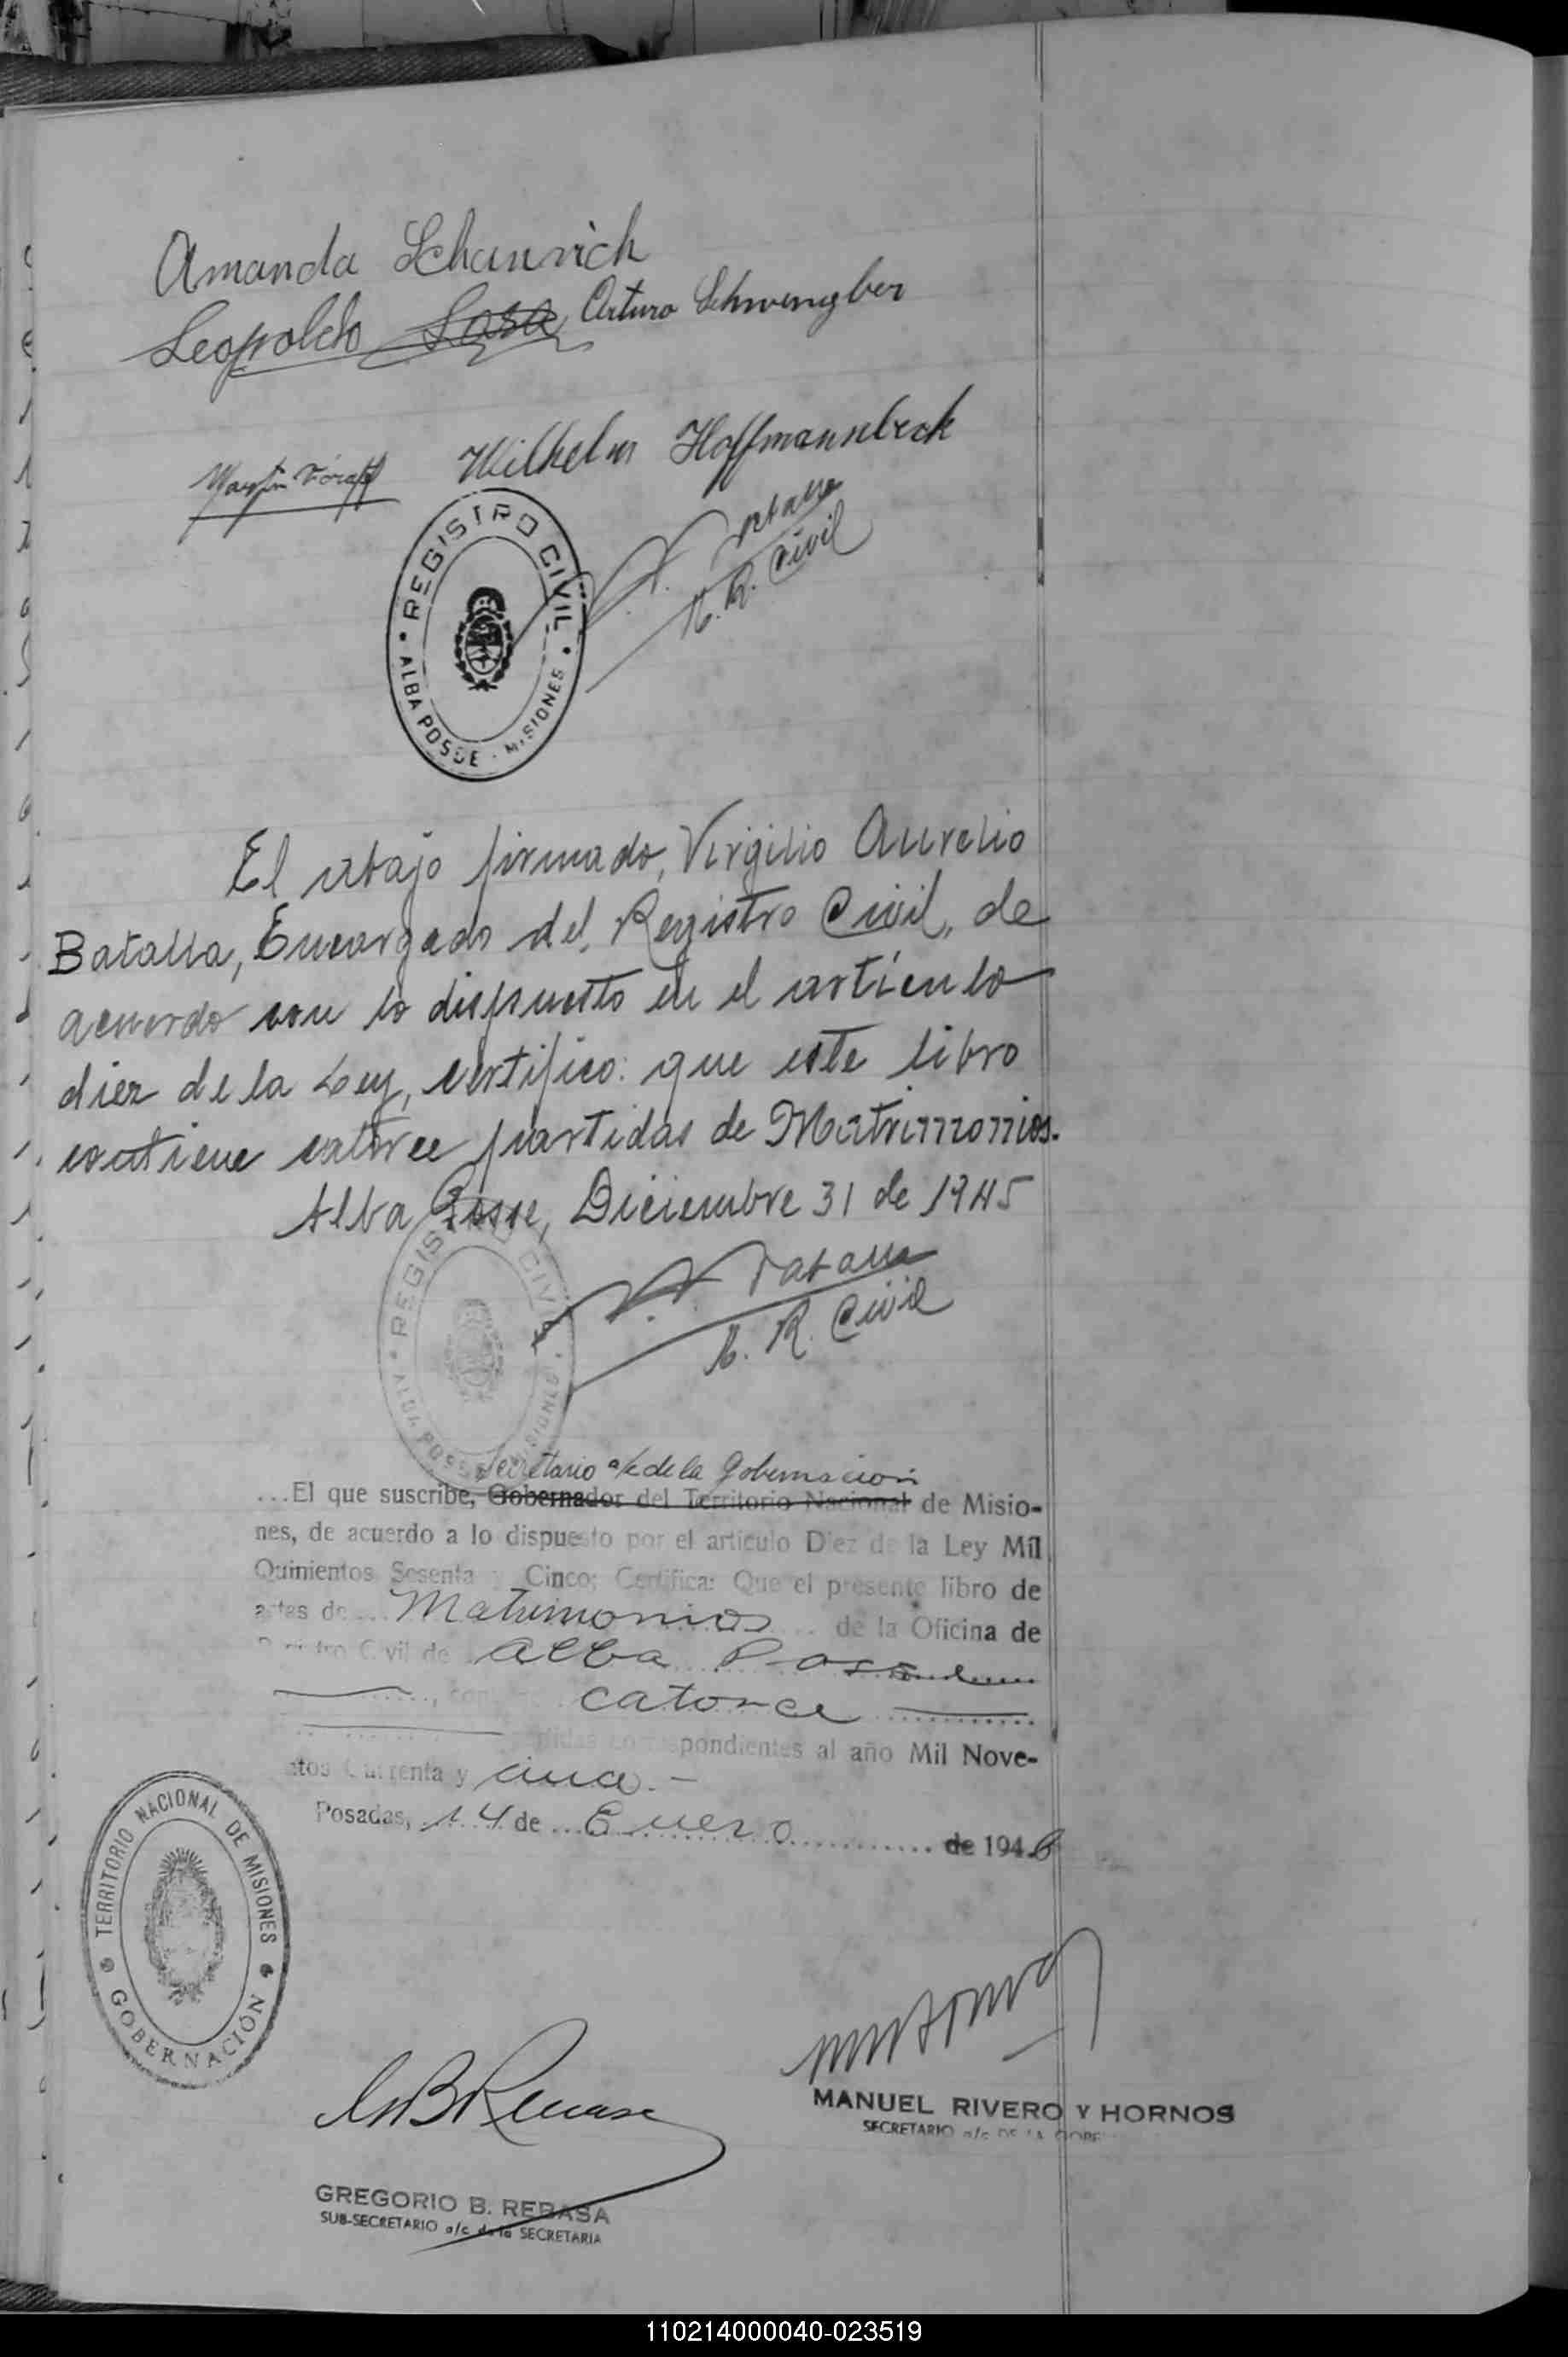 Amanda Schanvich
Leopoldo Sosa Arturo Schwengber
Wilhelm Hoffmannbeck
REGISTRO CIVIL
ALBA POSSE - MISIONES
R. Civil
El abajo firmado, Virgilio Aurelio
Batalla, Encargado del Registro Civil, de
acuerdo con lo dispuesto en el artículo
diez de la Ley, certifico: que este libro
contiene catorce partidas de Matrimonios.
Alba Posse, Diciembre 31 de 1945
REGISTRO CIVIL
ALBA POSSE MISIONES
R. Civil
Secretario a/c de la Gobernación
...El que suscribe, Gobernador del Territorio Nacional de Misio-
nes, de acuerdo a lo dispuesto por el artículo Diez de la Ley Mil
Quinientos Sesenta y Cinco; Certifica: Que el presente libro de
actas de ... Matrimonios ... de la Oficina de
Registro Civil de Alba Posse
catorce
correspondientes al año Mil Nove-
ntos Cuarenta y cinco.-
Posadas, 14 de Enero de 1946
TERRITORIO NACIONAL DE MISIONES
GOBERNACIÓN
MANUEL RIVERO Y HORNOS
SECRETARIO a/c DE LA GOBE
GREGORIO B. REBASA
SUB-SECRETARIO a/c de la SECRETARIA
110214000040-023519